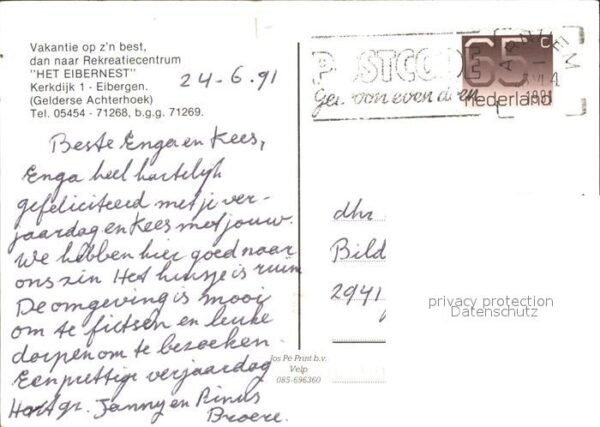 Vakantie op z'n best,
dan naar Rekreatiecentrum
"HET EIBERNEST"
Kerkdijk 1 - Eibergen.
(Gelderse Achterhoek)
Tel. 05454 - 71268, b.g.g. 71269.
24-6.91
Beste Enga en Kees,
Enga heel hartelijk
gefeliciteerd met je ver-
jaardag en Kees met jouw.
We hebben hier goed naar
ons zin Het huisje is ruim
De omgeving is mooi
om te fietsen en leuke
dorpen om te bezoeken.
Een prettige verjaardag
Hart gr. Janny en Rinus
Broere.
POSTCODE
Gewoon even doen
ARNHEM
1991
65 c
nederland
dhr
Bild
2941
privacy protection
Datenschutz
Jos Pe Print b.v.
Velp
085-696360